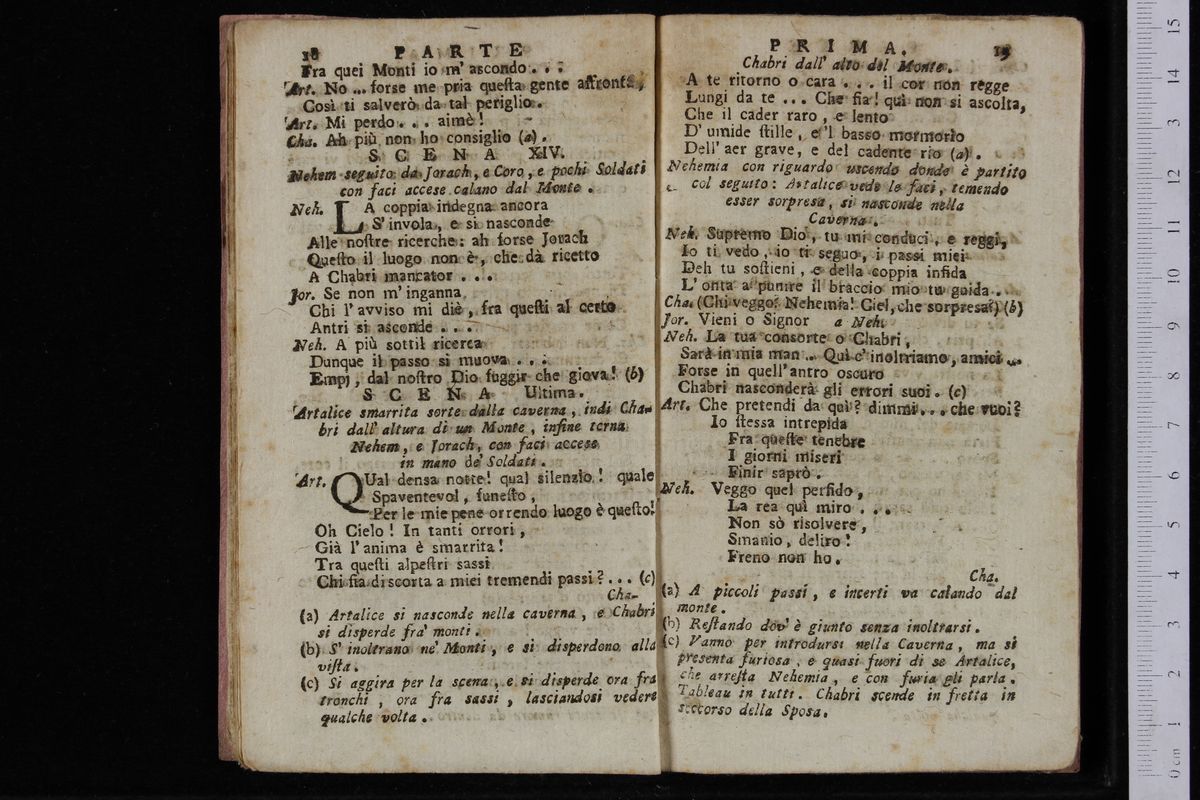 18 PARTE
Fra quei Monti io m' ascondo . . .
Art. No ... forse me pria queſta gente affronta,
Così ti salverò da tal periglio.
Art. Mi perdo . . . aimè!
Cha. Ah più non ho consiglio (a).
SCENA XIV.
Nehem seguito da Jorach, e Coro, e pochi Soldati
con faci accese calano dal Monte.
Neh. LA coppia indegna ancora
S' invola, e si nasconde
Alle noſtre ricerche: ah forse Jorach
Queſto il luogo non è, che dà ricetto
A Chabri mancator . . .
Jor. Se non m' inganna
Chi l' avviso mi diè, fra queſti al certo
Antri si asconde . . .
Neh. A più sottil ricerca
Dunque il passo si muova . . .
Empj, dal noſtro Dio fuggir che giova! (b)
SCENA Ultima.
Artalice smarrita sorte dalla caverna, indi Cha-
bri dall' altura di un Monte, infine torna
Nehem, e Jorach, con faci accese
in mano de' Soldati.
Art. QUal densa notte! qual silenzio! quale
Spaventevol, funeſto,
Per le mie pene orrendo luogo è queſto!
Oh Cielo! In tanti orrori,
Già l' anima è smarrita!
Tra queſti alpeſtri sassi
Chi fia di scorta a miei tremendi passi? . . . (c)
Cha-
(a) Artalice si nasconde nella caverna, e Chabri
si disperde fra' monti.
(b) S' inoltrano ne' Monti, e si disperdono alla
viſta.
(c) Si aggira per la scena, e si disperde ora fra
tronchi, ora fra sassi, lasciandosi vedere
qualche volta.
PRIMA. 19
Chabri dall' alto del Monte.
A te ritorno o cara . . . il cor non regge
Lungi da te ... Che fia! quì non si ascolta,
Che il cader raro, e lento
D' umide ſtille, e 'l basso mormorìo
Dell' aer grave, e del cadente rio (a).
Nehemia con riguardo uscendo donde è partito
col seguito: Artalice vede le faci, temendo
esser sorpresa, si nasconde nella
Caverna.
Neh. Supremo Dio, tu mi conduci, e reggi,
Io ti vedo, io ti seguo, i passi miei
Deh tu soſtieni, e della coppia infida
L' onta a punire il braccio mio tu guida.
Cha. (Chi veggo! Nehemia! Ciel, che sorpresa!) (b)
Jor. Vieni o Signor a Neh.
Neh. La tua consorte o Chabri,
Sarà in mia man ... Quì c' inoltriamo, amici ...
Forse in quell' antro oscuro
Chabri nasconderà gli errori suoi. (c)
Art. Che pretendi da quì? dimmi . . . che vuoi?
Io ſtessa intrepida
Fra queſte tenebre
I giorni miseri
Finir saprò.
Neh. Veggo quel perfido,
La rea quì miro . . .
Non sò risolvere,
Smanio, deliro!
Freno non ho.
Cha.
(a) A piccoli passi, e incerti va calando dal
monte.
(b) Reſtando dov' è giunto senza inoltrarsi.
(c) Vanno per introdursi nella Caverna, ma si
presenta furiosa, e quasi fuori di se Artalice,
che arreſta Nehemia, e con furia gli parla.
Tableau in tutti. Chabri scende in fretta in
soccorso della Sposa.
0 cm 1 2 3 4 5 6 7 8 9 10 11 12 13 14 15